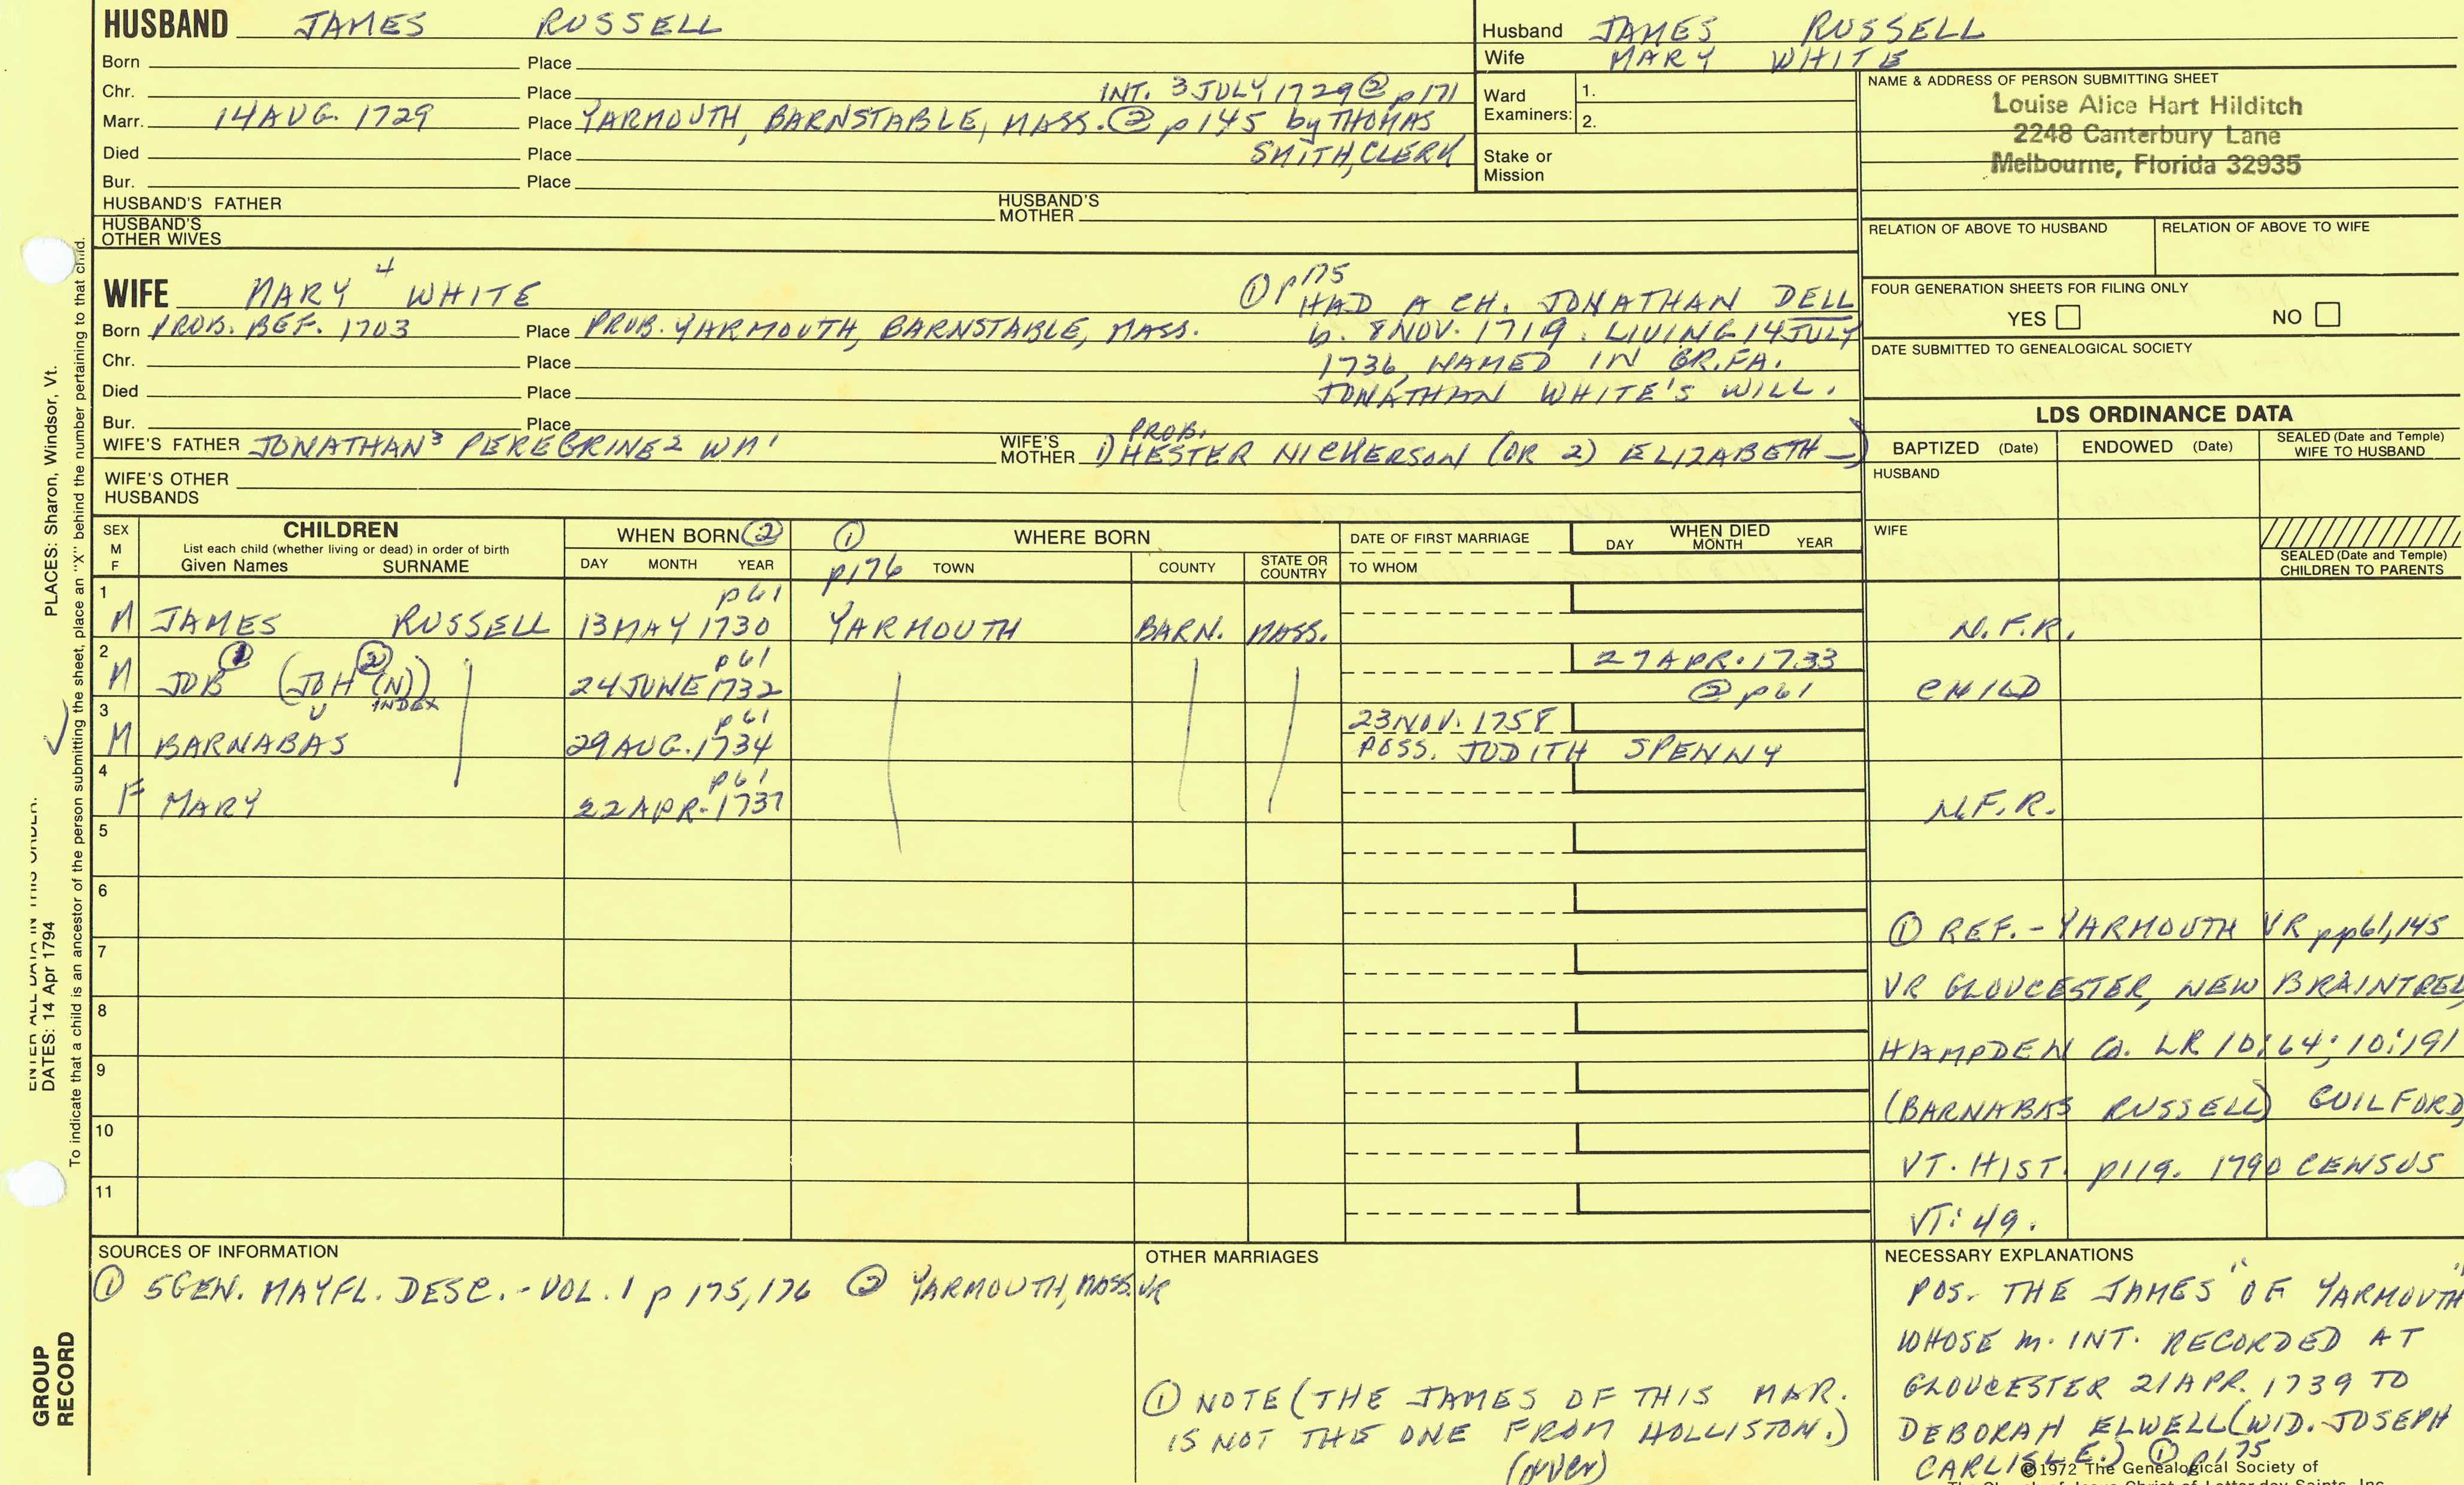 HUSBAND JAMES RUSSELL
Born Place
Chr. Place INT. 3 JULY 1729 @ p171
Marr. 14 AUG. 1729 Place YARMOUTH, BARNSTABLE, MASS. ② p145 by THOMAS
Died Place SMITH, CLERK
Bur. Place
HUSBAND'S FATHER HUSBAND'S MOTHER
HUSBAND'S OTHER WIVES
Husband JAMES RUSSELL
Wife MARY WHITE
Ward Examiners: 1.
2.
Stake or Mission
NAME & ADDRESS OF PERSON SUBMITTING SHEET
Louise Alice Hart Hilditch
2248 Canterbury Lane
Melbourne, Florida 32935
RELATION OF ABOVE TO HUSBAND RELATION OF ABOVE TO WIFE
FOUR GENERATION SHEETS FOR FILING ONLY
YES NO
DATE SUBMITTED TO GENEALOGICAL SOCIETY
WIFE MARY 4 WHITE
Born PROB. BEF. 1703 Place PROB. YARMOUTH, BARNSTABLE, MASS.
Chr. Place
Died Place
Bur. Place
① p175
HAD A CH. JONATHAN DELL
b. 8 NOV. 1719. LIVING 14 JULY
1736, NAMED IN GR. FA.
JONATHAN WHITE'S WILL.
WIFE'S FATHER JONATHAN3 PEREGRINE2 WM1
WIFE'S MOTHER PROB. 1) HESTER NICKERSON (OR 2) ELIZABETH —)
WIFE'S OTHER HUSBANDS
LDS ORDINANCE DATA
BAPTIZED (Date) ENDOWED (Date) SEALED (Date and Temple) WIFE TO HUSBAND
HUSBAND
WIFE
SEALED (Date and Temple) CHILDREN TO PARENTS
SEX M F CHILDREN
List each child (whether living or dead) in order of birth
Given Names SURNAME
WHEN BORN ②
DAY MONTH YEAR
① p176 WHERE BORN
TOWN COUNTY STATE OR COUNTRY
DATE OF FIRST MARRIAGE
TO WHOM
WHEN DIED
DAY MONTH YEAR
1 M JAMES RUSSELL p61 13 MAY 1730 YARMOUTH BARN. MASS. N.F.R.
2 M JOB ① (JOH (N)) ② INDEX p61 24 JUNE 1732 27 APR. 1733 @ p61 CHILD
3 M BARNABAS p61 29 AUG. 1734 23 NOV. 1758 POSS. JUDITH SPENNY
4 F MARY p61 22 APR. 1737 N.F.R.
5
6
7
8
9
10
11
① REF.- YARMOUTH VR pp61,145
VR GLOUCESTER, NEW BRAINTREE,
HAMPDEN CO. LR 10:64; 10:191
(BARNABAS RUSSELL) GUILFORD,
VT. HIST. p119. 1790 CENSUS
VT: 49.
SOURCES OF INFORMATION
① 5 GEN. MAYFL. DESC. - VOL. 1 p 175, 176 ② YARMOUTH, MASS. VR
OTHER MARRIAGES
① NOTE (THE JAMES OF THIS MAR.
IS NOT THE ONE FROM HOLLISTON.)
(over)
NECESSARY EXPLANATIONS
POS. THE JAMES "OF YARMOUTH"
WHOSE M. INT. RECORDED AT
GLOUCESTER 21 APR. 1739 TO
DEBORAH ELWELL (WID. JOSEPH
CARLISLE.) ① p175
©1972 The Genealogical Society of
The Church of Jesus Christ of Latter-day Saints, Inc.
PLACES: Sharon, Windsor, Vt.
To indicate that a child is an ancestor of the person submitting the sheet, place an "X" behind the number pertaining to that child.
ENTER ALL DATA IN THIS ORDER:
DATES: 14 Apr 1794
GROUP RECORD